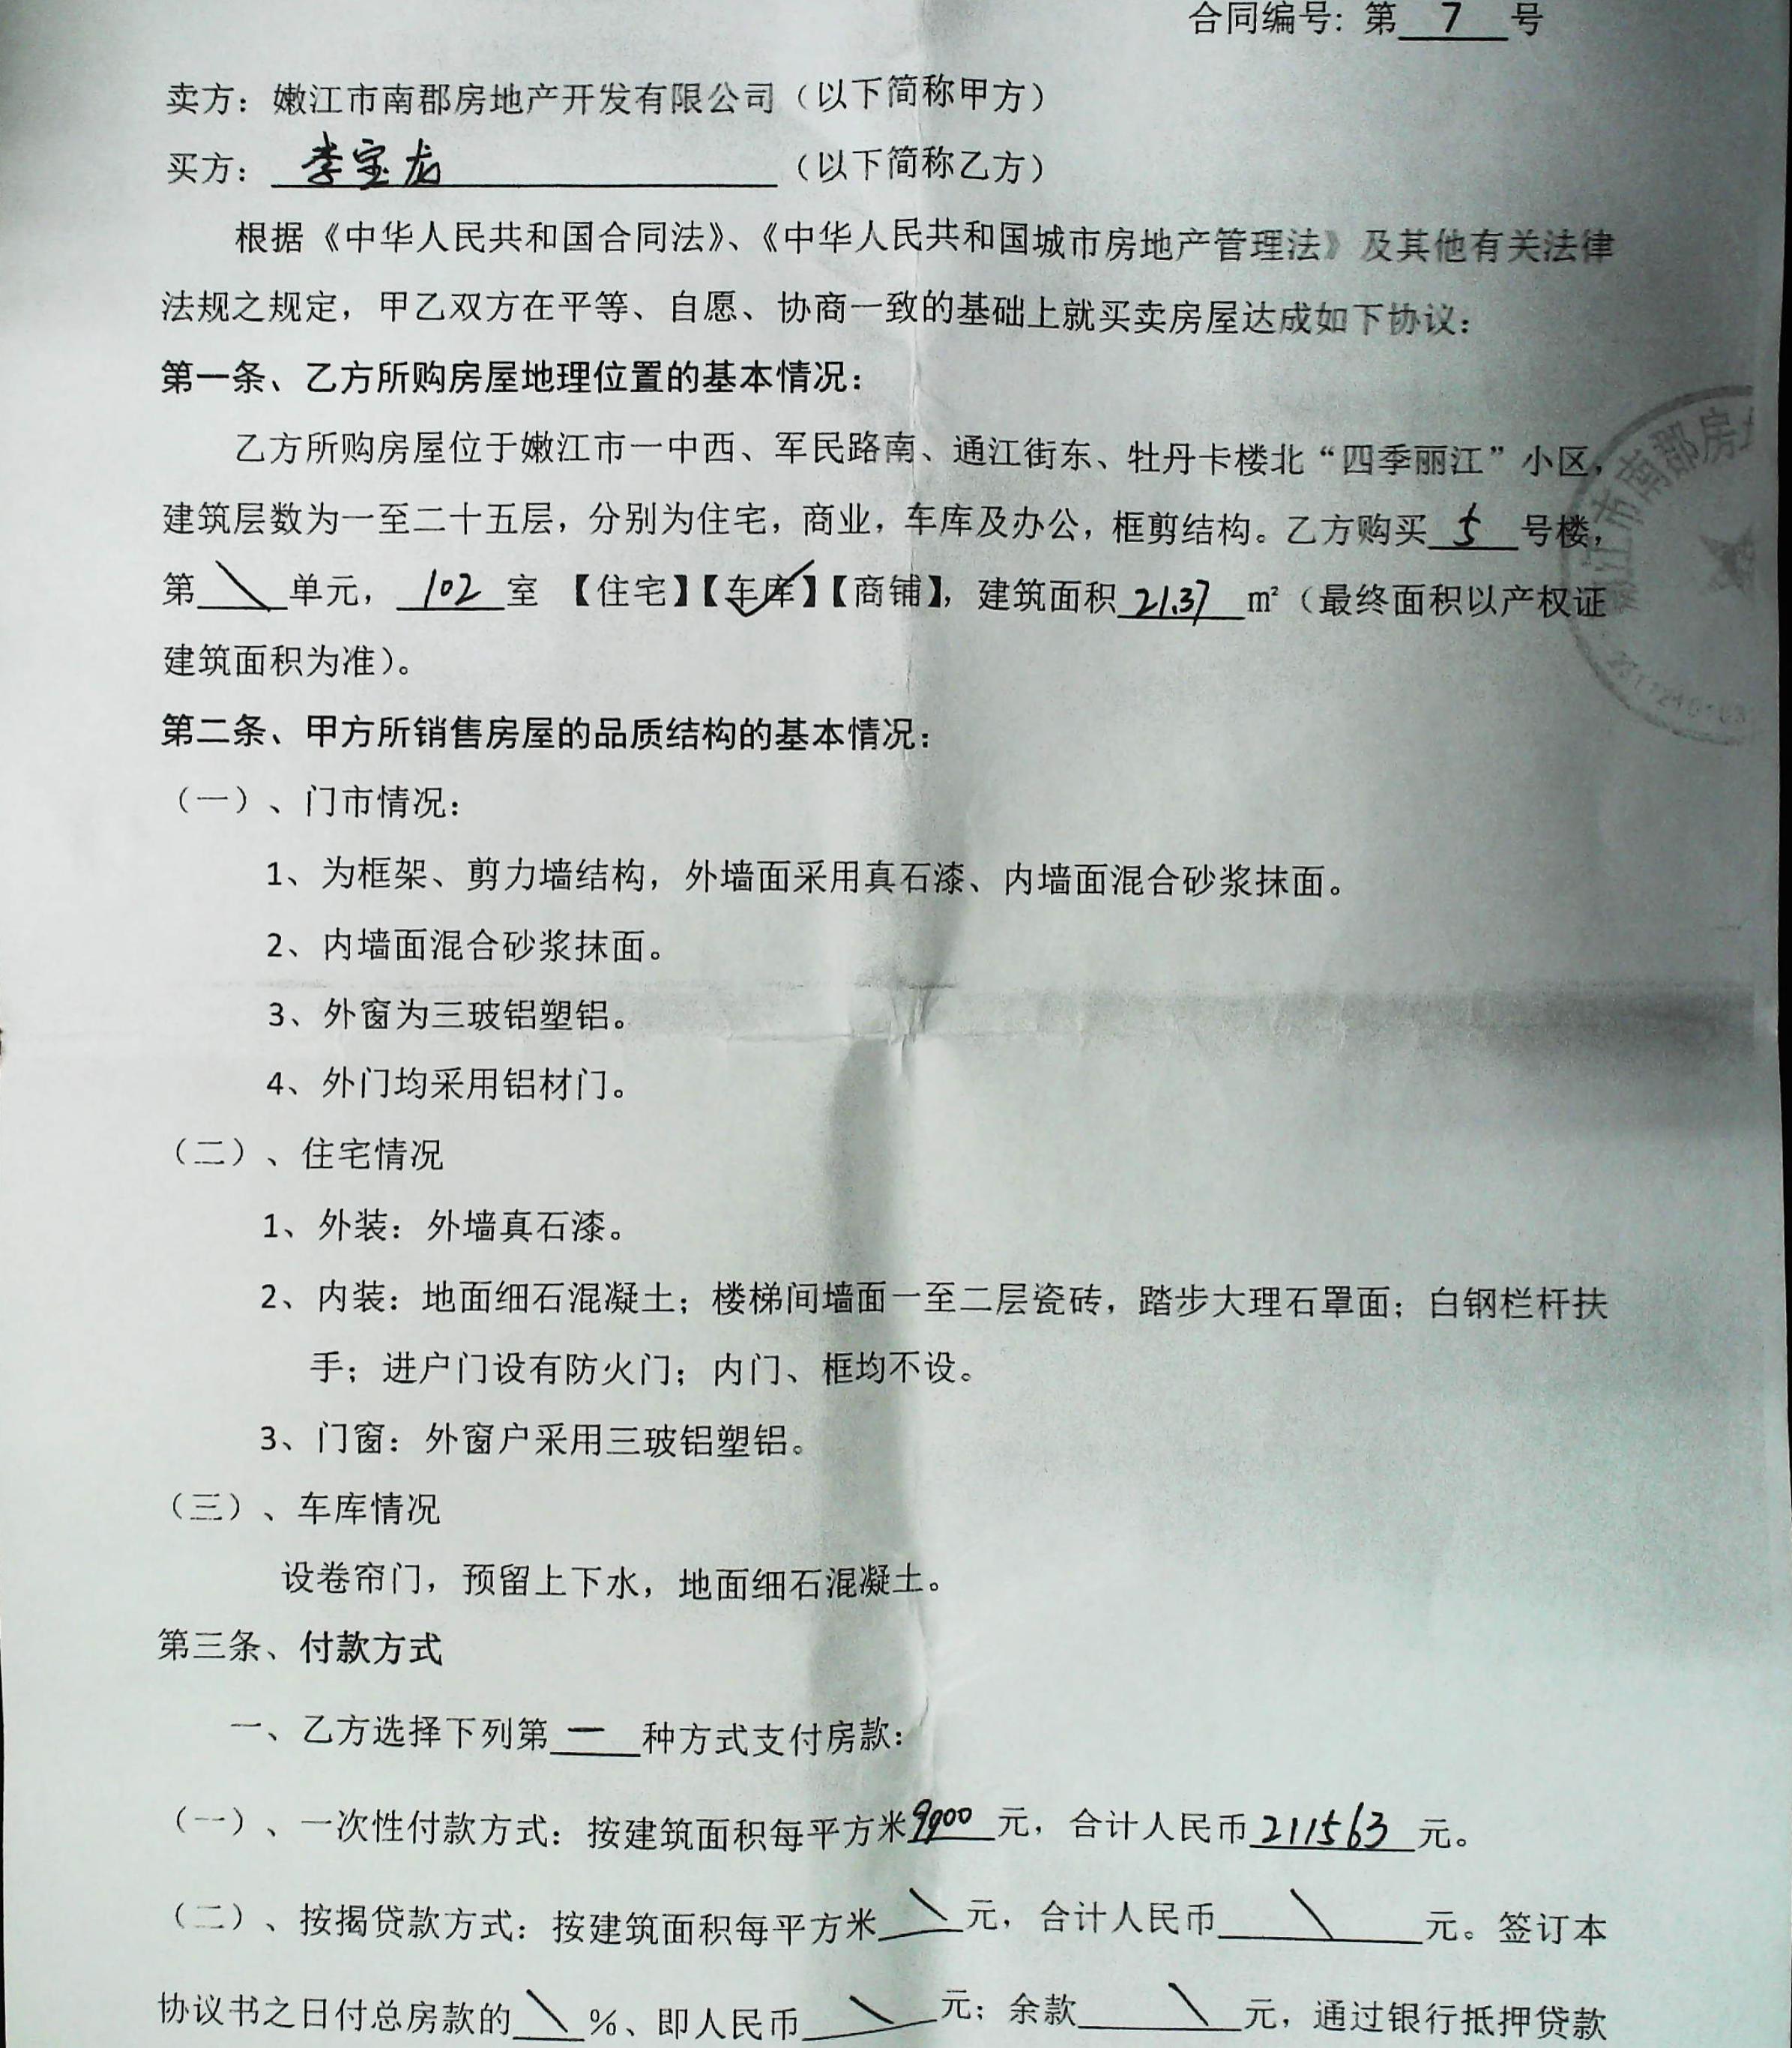 合同编号：第 7 号
卖方：嫩江市南郡房地产开发有限公司（以下简称甲方）
买方：李宝龙（以下简称乙方）
根据《中华人民共和国合同法》、《中华人民共和国城市房地产管理法》及其他有关法律
法规之规定，甲乙双方在平等、自愿、协商一致的基础上就买卖房屋达成如下协议：
第一条、乙方所购房屋地理位置的基本情况：
乙方所购房屋位于嫩江市一中西、军民路南、通江街东、牡丹卡楼北“四季丽江”小区，
建筑层数为一至二十五层，分别为住宅，商业，车库及办公，框剪结构。乙方购买 5 号楼，
第 \ 单元， 102 室 【住宅】【车库】【商铺】，建筑面积 21.37 ㎡（最终面积以产权证
建筑面积为准）。
市南郡房
第二条、甲方所销售房屋的品质结构的基本情况：
（一）、门市情况：
1、为框架、剪力墙结构，外墙面采用真石漆、内墙面混合砂浆抹面。
2、内墙面混合砂浆抹面。
3、外窗为三玻铝塑铝。
4、外门均采用铝材门。
（二）、住宅情况
1、外装：外墙真石漆。
2、内装：地面细石混凝土；楼梯间墙面一至二层瓷砖，踏步大理石罩面；白钢栏杆扶
手；进户门设有防火门；内门、框均不设。
3、门窗：外窗户采用三玻铝塑铝。
（三）、车库情况
设卷帘门，预留上下水，地面细石混凝土。
第三条、付款方式
一、乙方选择下列第 一 种方式支付房款：
（一）、一次性付款方式：按建筑面积每平方米 9900 元，合计人民币 211563 元。
（二）、按揭贷款方式：按建筑面积每平方米 \ 元，合计人民币 \ 元。签订本
协议书之日付总房款的 \ %、即人民币 \ 元；余款 \ 元，通过银行抵押贷款